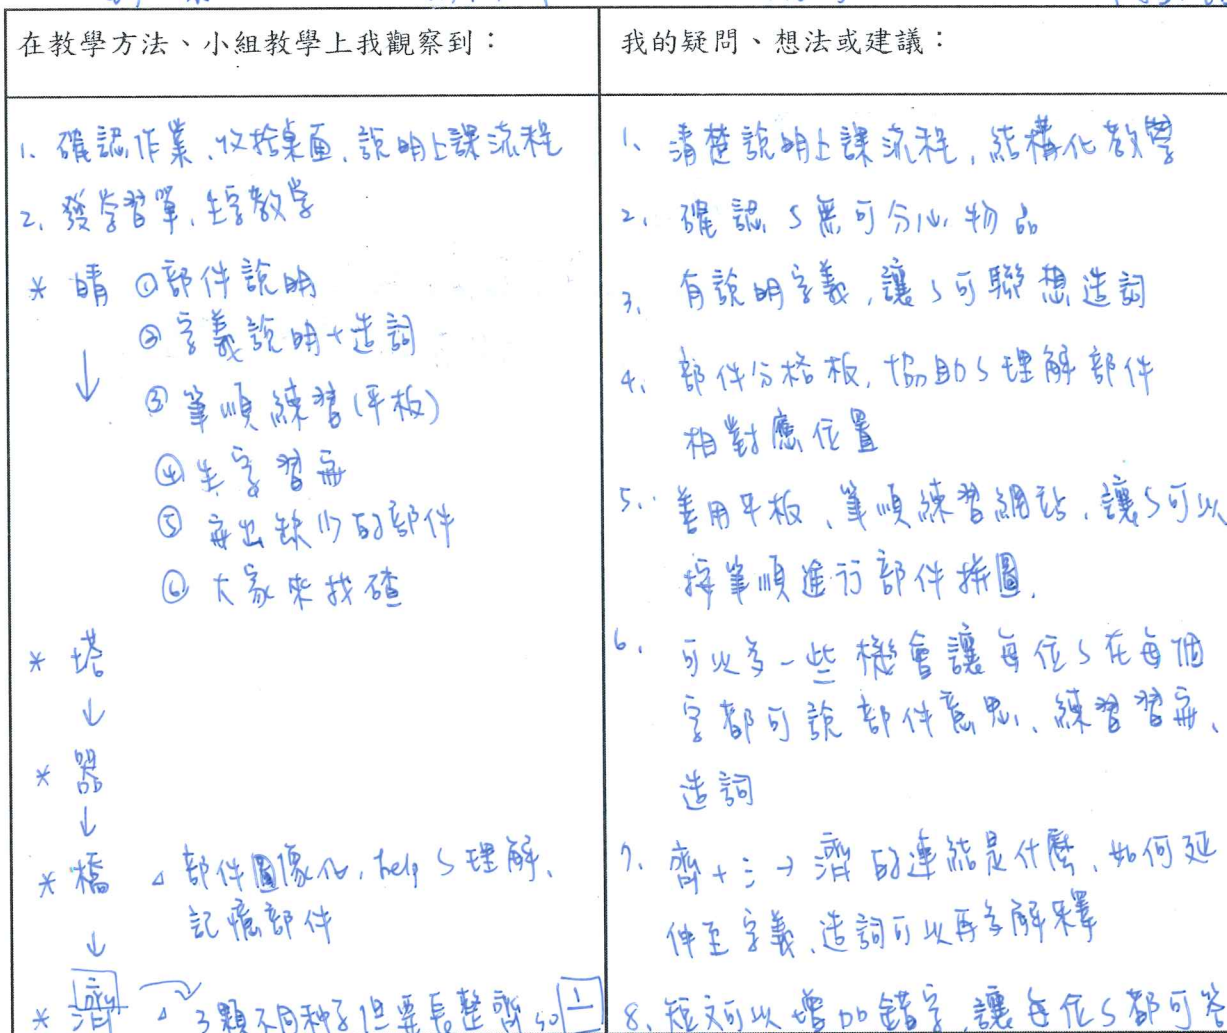 在教學方法、小組教學上我觀察到：
1、確認作業、收拾桌面、說明上課流程
2、發学習單、生字教学
* 晴 ①部件說明
②字義說明+造詞
↓
③筆順練習(平板)
④生字習寫
⑤寫出缺少的部件
⑥大家來找碴
* 塔
↓
* 器
↓
* 橋 △ 部件圖像化, help S 理解、
記憶部件
↓
* 濟 △ 3顆不同种子但要長整齊
我的疑問、想法或建議：
1、清楚說明上課流程, 結構化教學
2、確認 S 無可分心物品
3、有說明字義, 讓 S 可聯想造詞
4、部件分格板, 協助 S 理解部件
相對應位置
5、善用平板、筆順練習網站, 讓 S 可以
按筆順進行部件拼圖.
6、可以多一些機會讓每位 S 在每個
字都可說部件意思、練習習寫、
造詞
7、齊+氵→濟 的連結是什麼、如何延
伸至字義、造詞可以再多解釋
8、短文可以增加錯字, 讓每位 S 都可答